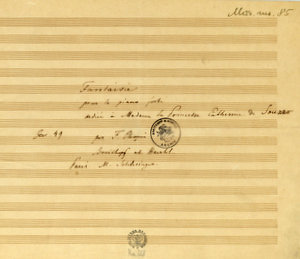 Mus. 85
Fantaisie
pour le piano forte
dédiée à Madame la Princesse Catherine de Souzzo
Oev 49 par F. Chopin
Breitkopf et Haertel
Paris M. Schlesinger